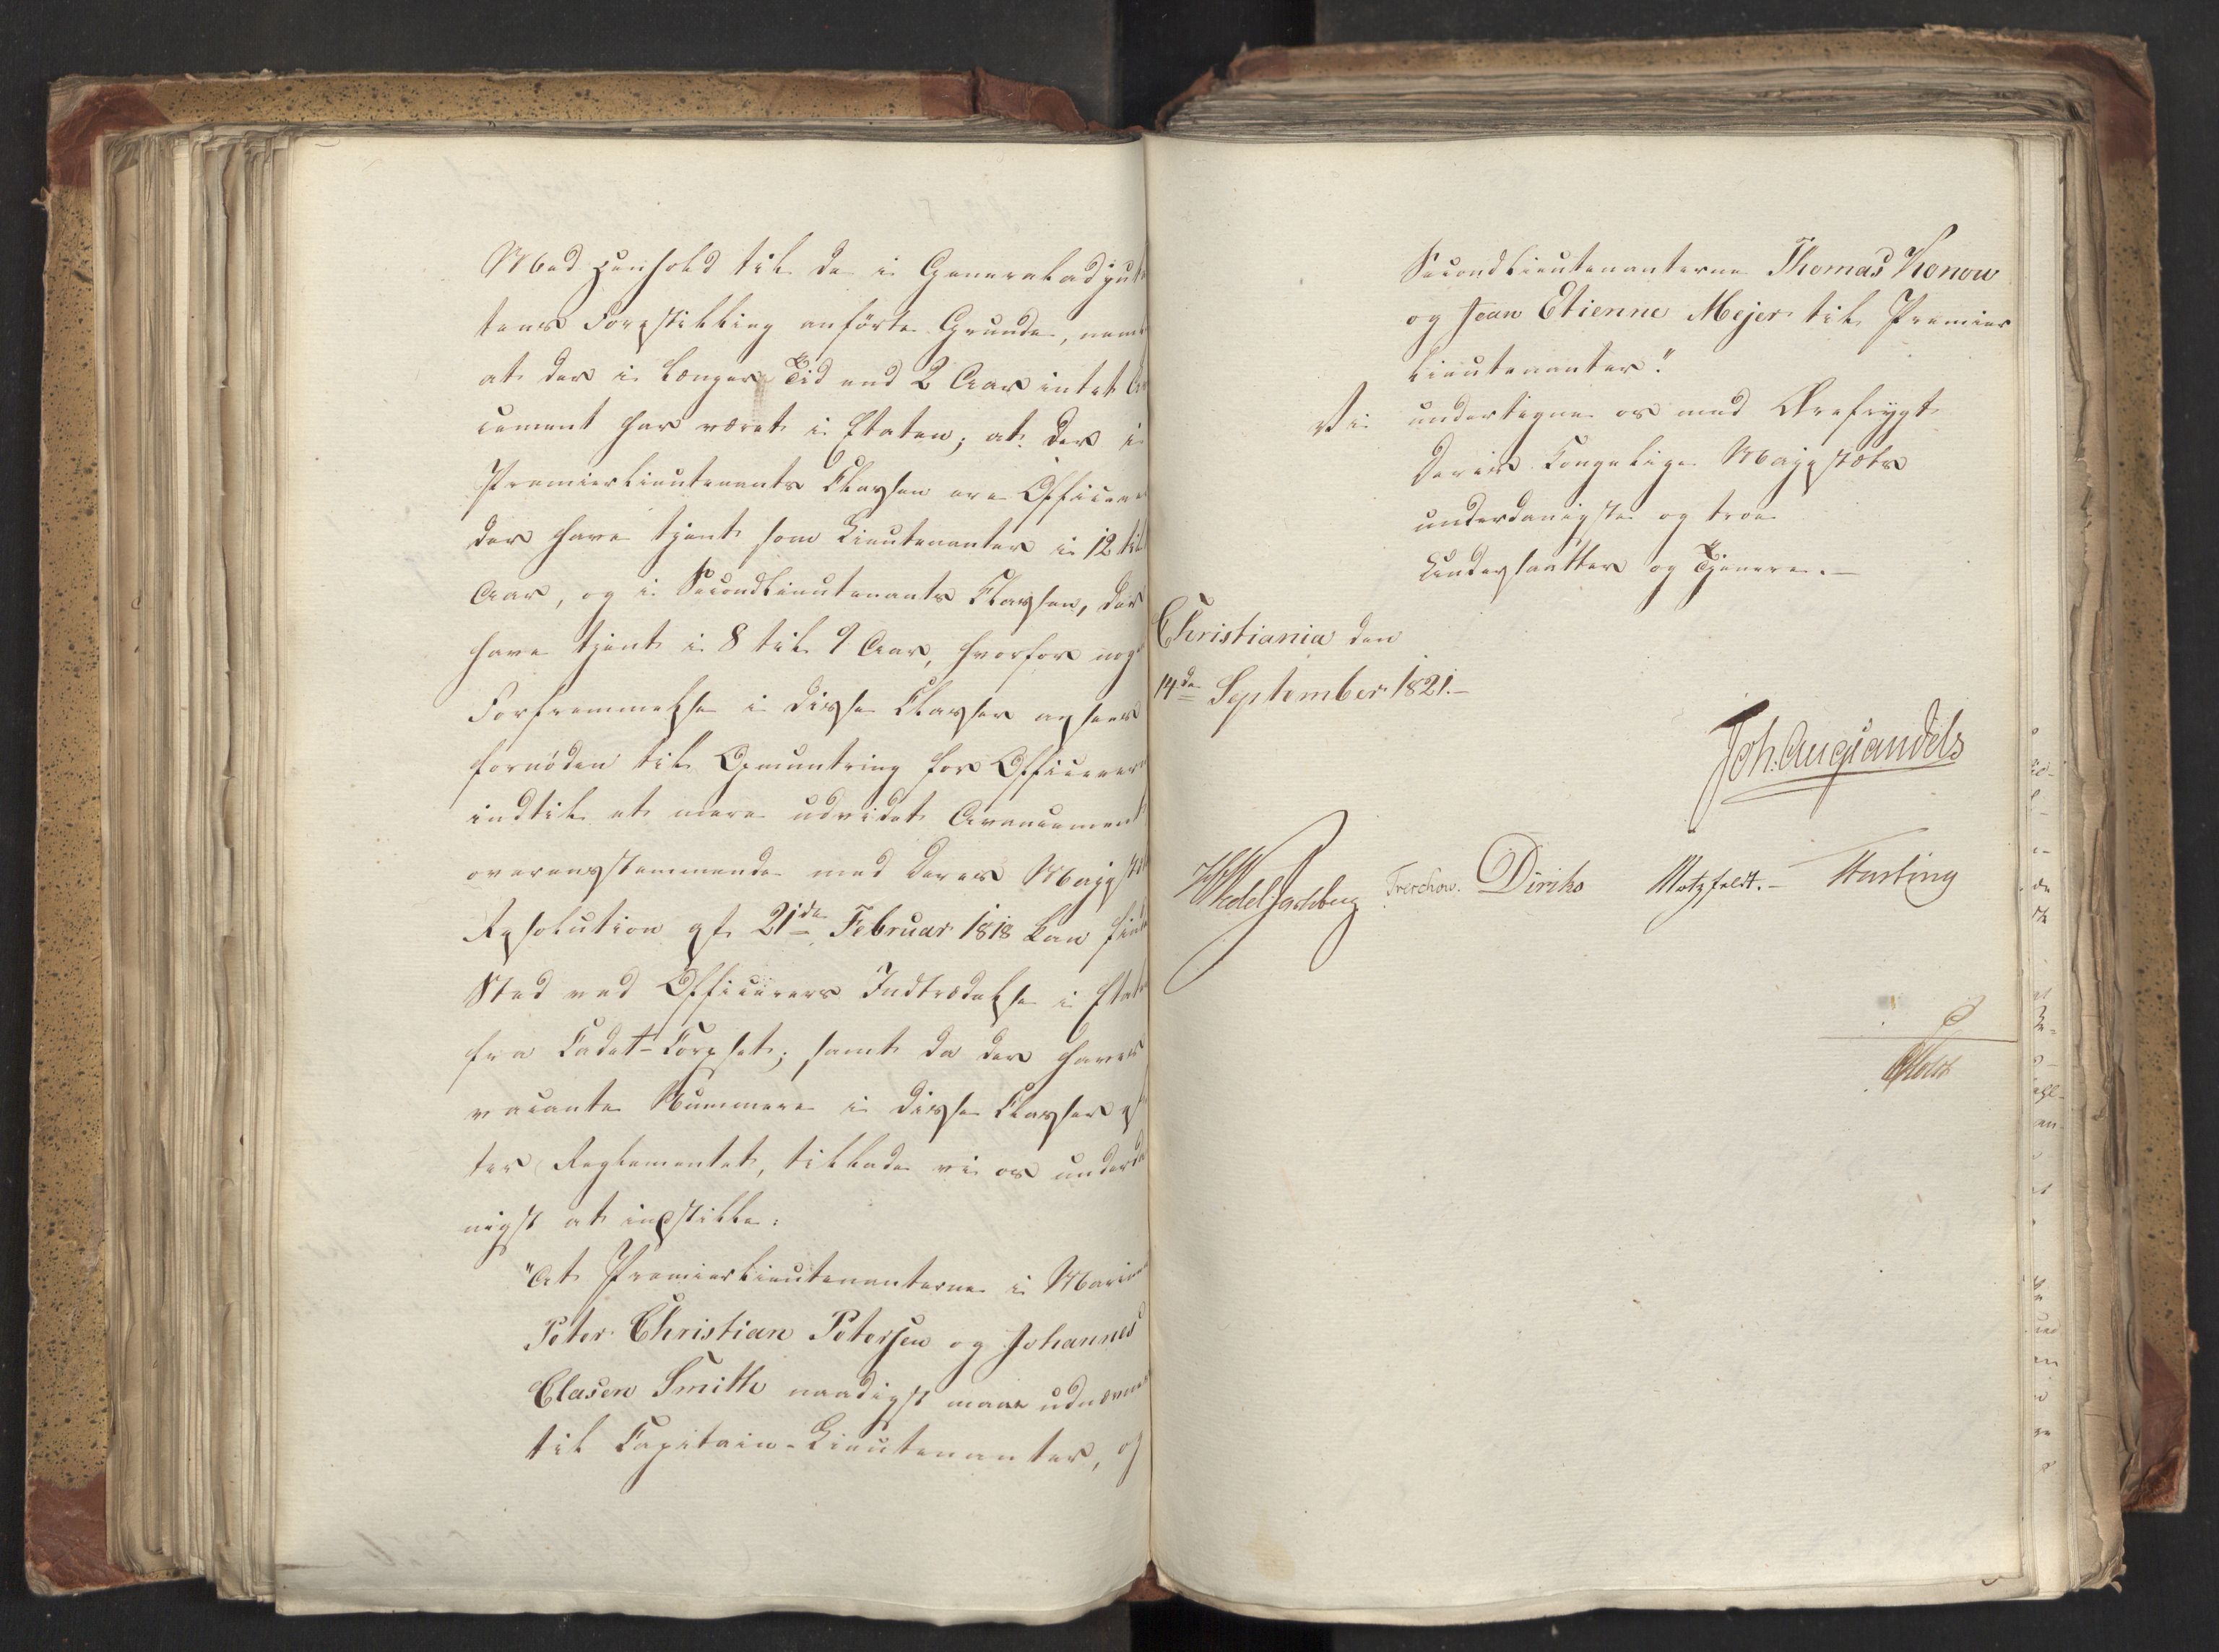 Med Henhold til de i Generaladjut
tens Forestilling anførte Grunde, neml
at der i længere Tid end 2 Aar intet A
cement har været i Etaten; at der i
Premierlieutenants Classen ere Officere
der have tjent som Lieutenanter i 12 til
Aar, og i Secondlieutenants Classen, der
have tjent i 8 til 9 Aar, hvorfor nog
Forfremmelse i disse Classer ansees
fornøden til Opmuntring for Officerer
indtil et mere udvidet Avancement
overensstemmende med Deres Majest
Resolution af 21de Februar 1818 kan finde
Sted ved Officerers Indtrædelse i Etat
fra Cadet-Corpset; samt da der haves
vacante Nummere i disse Classer ef
ter Reglementet, tillade vi os underda
nigst at indstille:
"At Premierlieutenanterne i Marine
Peter Christian Petersen og Johannes
Clasen Smith naadigst maae udnævnes
til Capitain-Lieutenanter, og
Secondlieutenanterne Thomas Konow
og Jean Etienne Mejer til Premier
lieutenanter."
Vi undertegne os med Ærefrygt
Deres Kongelige Majestæts
underdanigste og troe
Undersaatter og Tjenere.-
Christiania den
14de September 1821.-
Joh. Aug Sandels
HWedel Jarlsberg Treschow. Diriks Motzfeldt.- Fasting
Holst